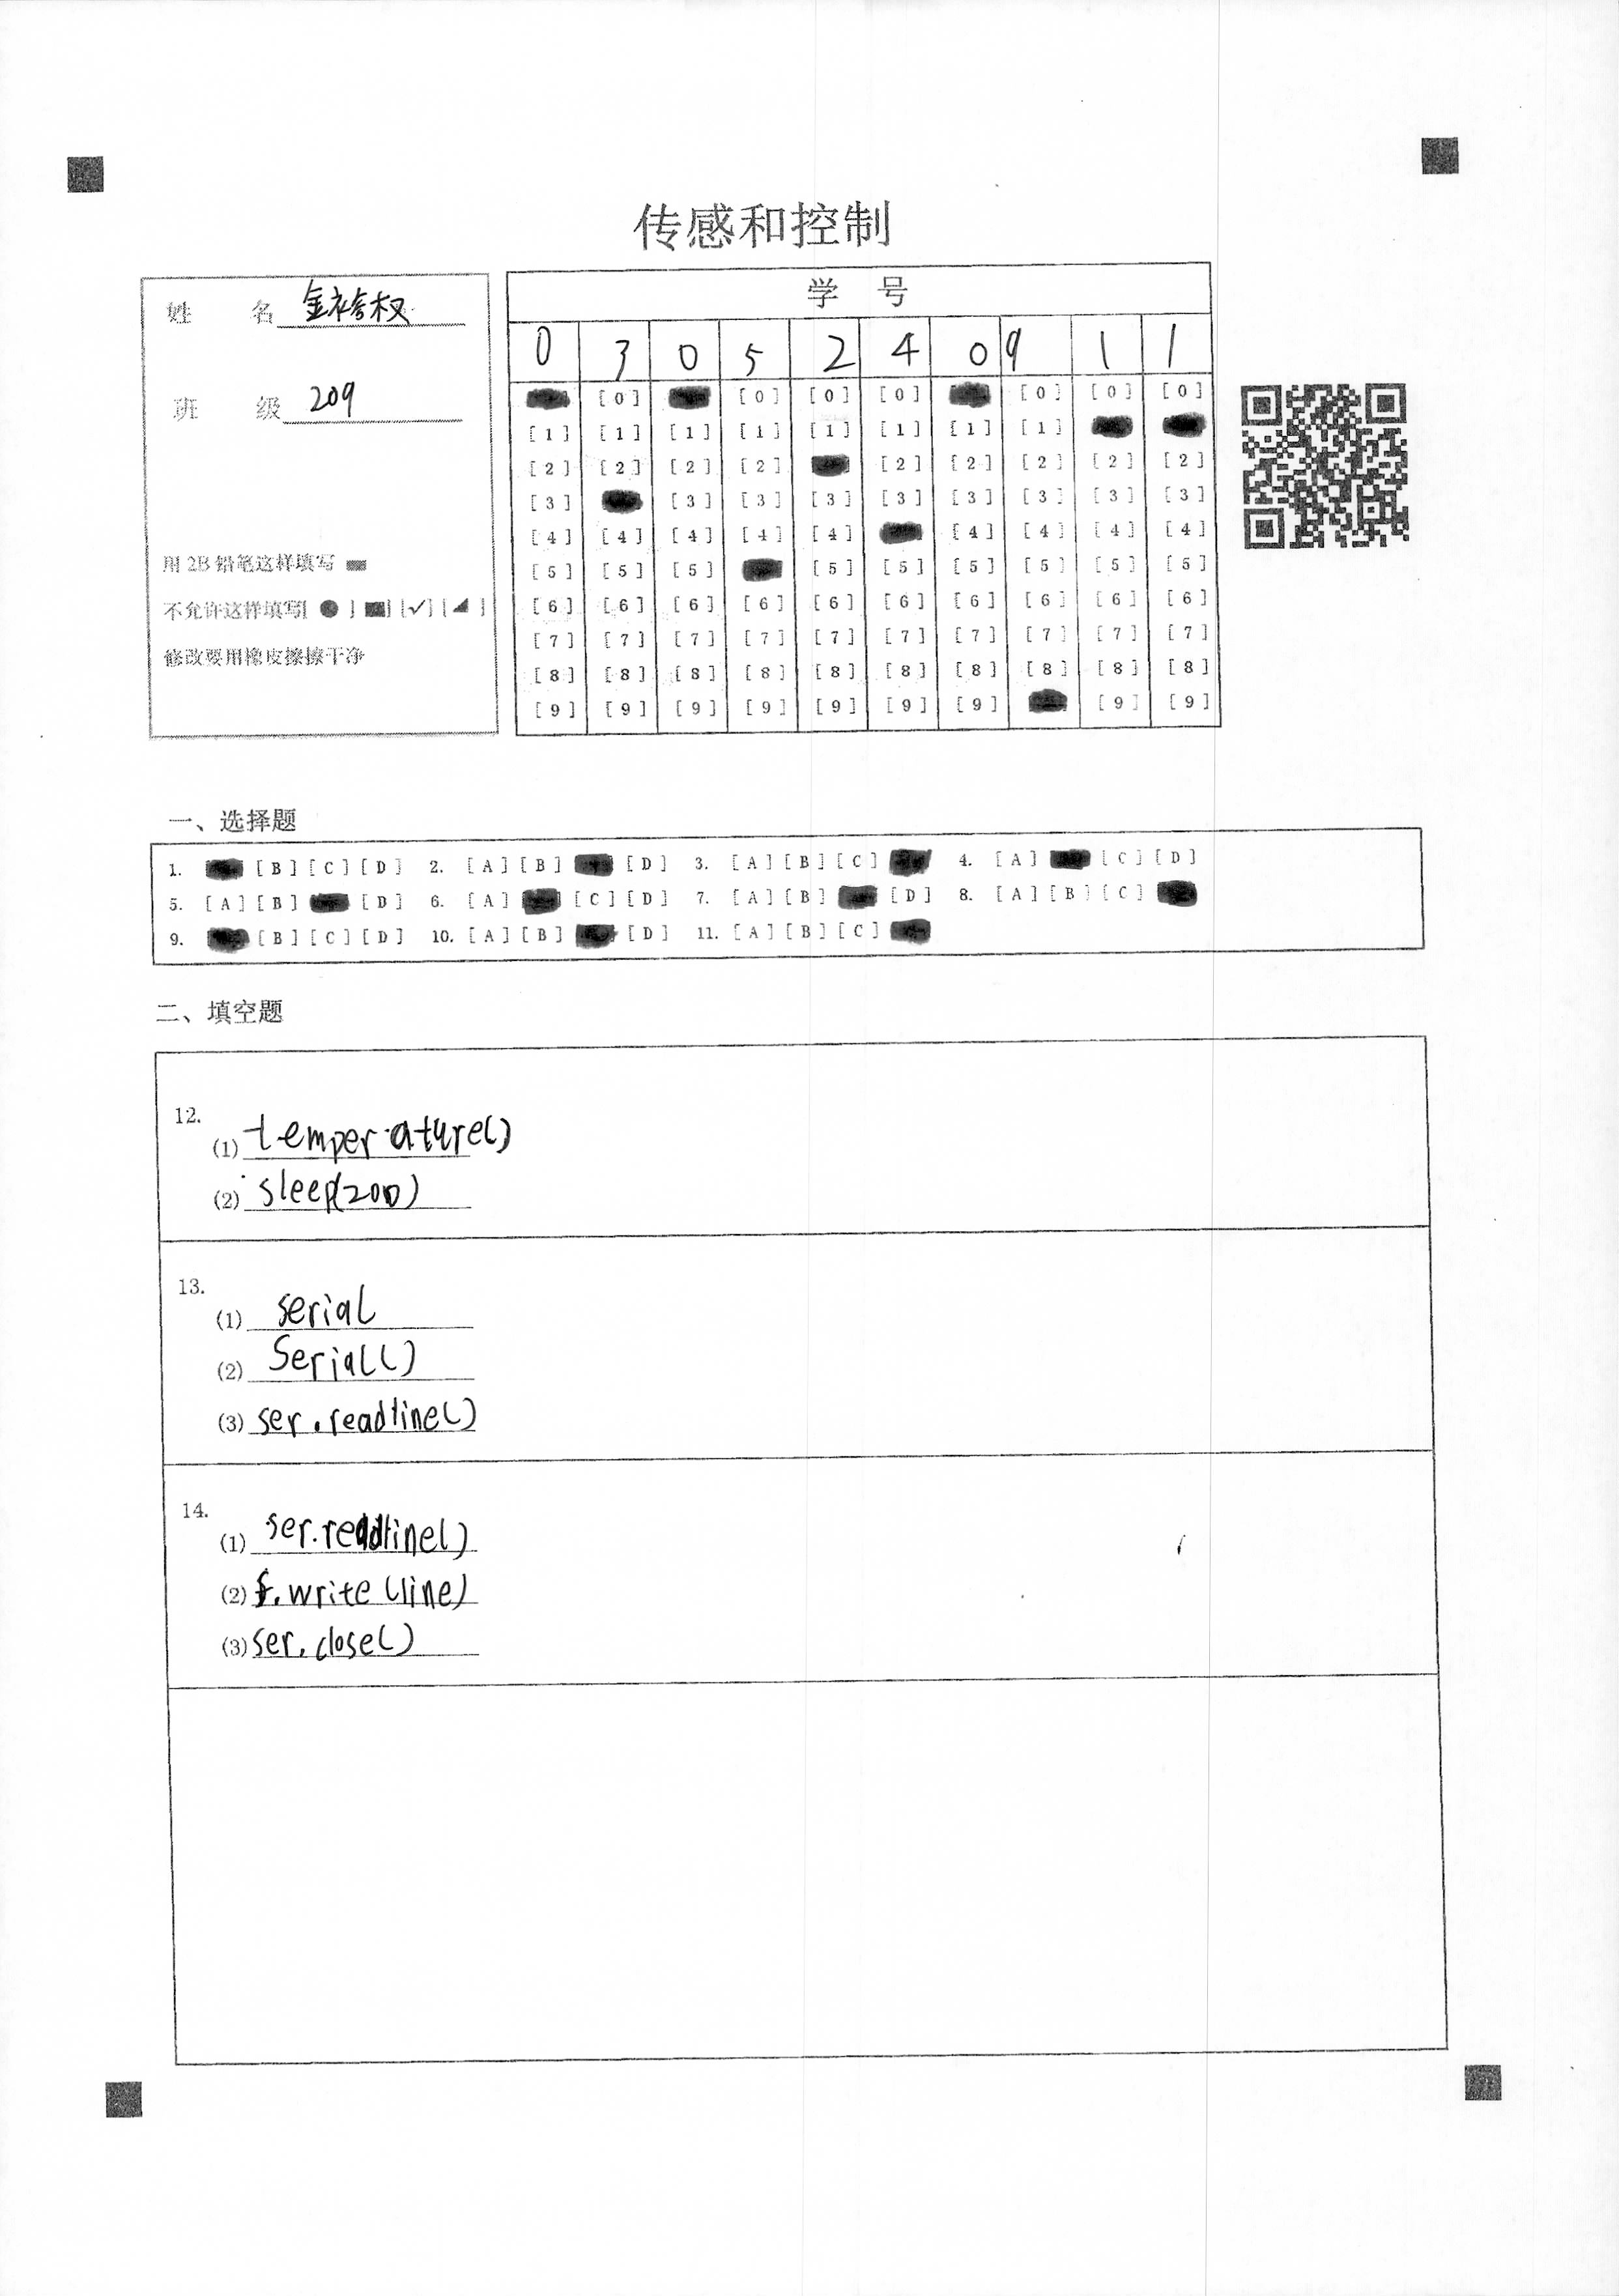 传感和控制
姓 名 金袴权
班 级 209
用 2B 铅笔这样填写
不允许这样填写[ ● ] [■] [✓] [◢ ]
修改要用橡皮擦擦干净
学 号
0 3 0 5 2 4 0 9 1 1
[0] [0] [0] [0] [0] [0]
[1] [1] [1] [1] [1] [1] [1] [1]
[2] [2] [2] [2] [2] [2] [2] [2] [2]
[3] [3] [3] [3] [3] [3] [3] [3] [3]
[4] [4] [4] [4] [4] [4] [4] [4] [4]
[5] [5] [5] [5] [5] [5] [5] [5] [5]
[6] [6] [6] [6] [6] [6] [6] [6] [6] [6]
[7] [7] [7] [7] [7] [7] [7] [7] [7] [7]
[8] [8] [8] [8] [8] [8] [8] [8] [8] [8]
[9] [9] [9] [9] [9] [9] [9] [9] [9]
一、选择题
1. [B] [C] [D] 2. [A] [B] [D] 3. [A] [B] [C] 4. [A] [C] [D]
5. [A] [B] [D] 6. [A] [C] [D] 7. [A] [B] [D] 8. [A] [B] [C]
9. [B] [C] [D] 10. [A] [B] [D] 11. [A] [B] [C]
二、填空题
12.
(1) temperature()
(2) sleep(200)
13.
(1) serial
(2) Serial()
(3) ser.readline()
14.
(1) ser.readline()
(2) f.write(line)
(3) ser.close()